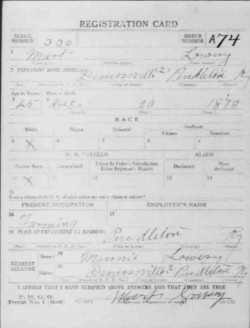 REGISTRATION CARD
SERIAL NUMBER 330 ORDER NUMBER A74
1 Mort Lowery
2 PERMANENT HOME ADDRESS:
Demossville Pendleton Ky
Age in Years Date of Birth
45 Dec 20 1872
RACE
White Negro Oriental Indian
Citizen Noncitizen
X
U. S. CITIZEN ALIEN
Native Born Naturalized Citizen by Father's Naturalization Before Registrant's Majority Declarant Non-declarant
X
15 If not a citizen of the U. S., of what nation are you a citizen or subject?
PRESENT OCCUPATION EMPLOYER'S NAME
16 Farming 17
18 PLACE OF EMPLOYMENT OR BUSINESS:
Pendleton Ky
NEAREST RELATIVE
Name 19 Minnie Lowery
Address 20 Demossville Pendleton Ky
I AFFIRM THAT I HAVE VERIFIED ABOVE ANSWERS AND THAT THEY ARE TRUE
P. M. G. O.
Form No. 1 (Red)